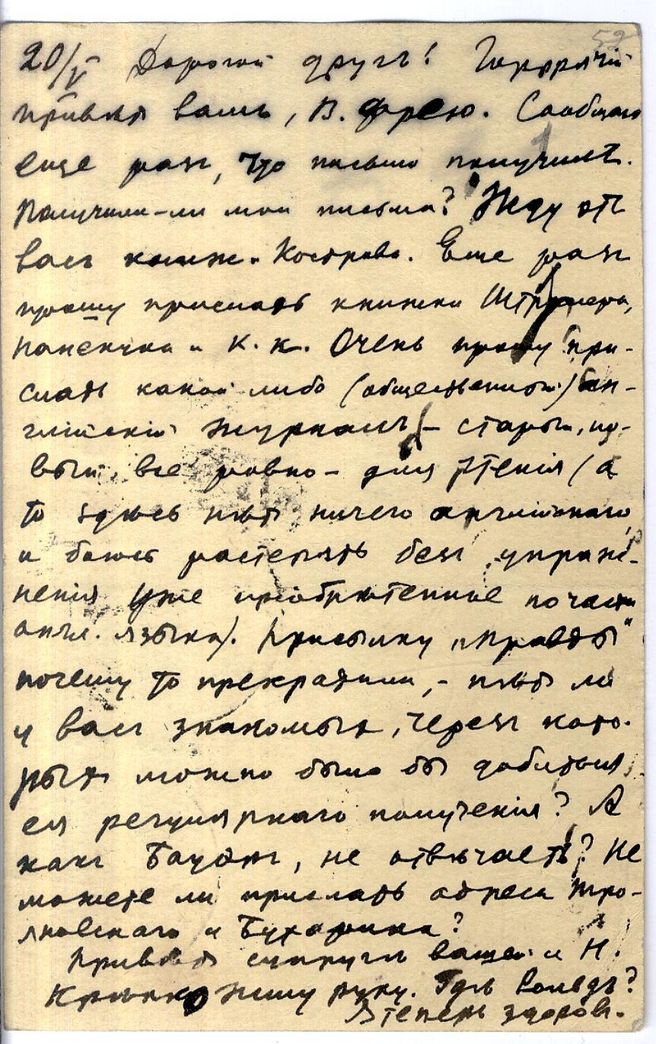 52
20/V Дорогой другъ! Горячiй
привѣт вамъ, В. Фрею. Сообщаю
еще разъ, что письмо получилъ.
Получили-ли мои письма? Жду отъ
васъ книж. Кострова. Еще разъ
прошу прислать книжки Штрассера,
Панекука и К. К. Очень прошу при-
слать какой либо (общественный) ан-
глiйскiй журналъ – старый, но-
вый, все равно – для чтенiя (а
то здѣсь нѣтъ ничего английскаго,
и боюсь растерять безъ упраж-
ненiя уже прiобрѣтенное по части
англ. языка). Присылку „Правды“
почему то прекратили, – нѣтъ ли
у васъ знакомыхъ, черезъ кото-
рыхъ можно было бы добиться
регулярнаго полученiя? А
какъ Бауэръ, не отвѣчаетъ? Не
можете ли прислать адреса Тро-
яновскаго и Бухарина?
Привѣтъ супругѣ вашей и Н.
Крѣпко жму руку. Гдѣ Володя?
Я теперь здоров.